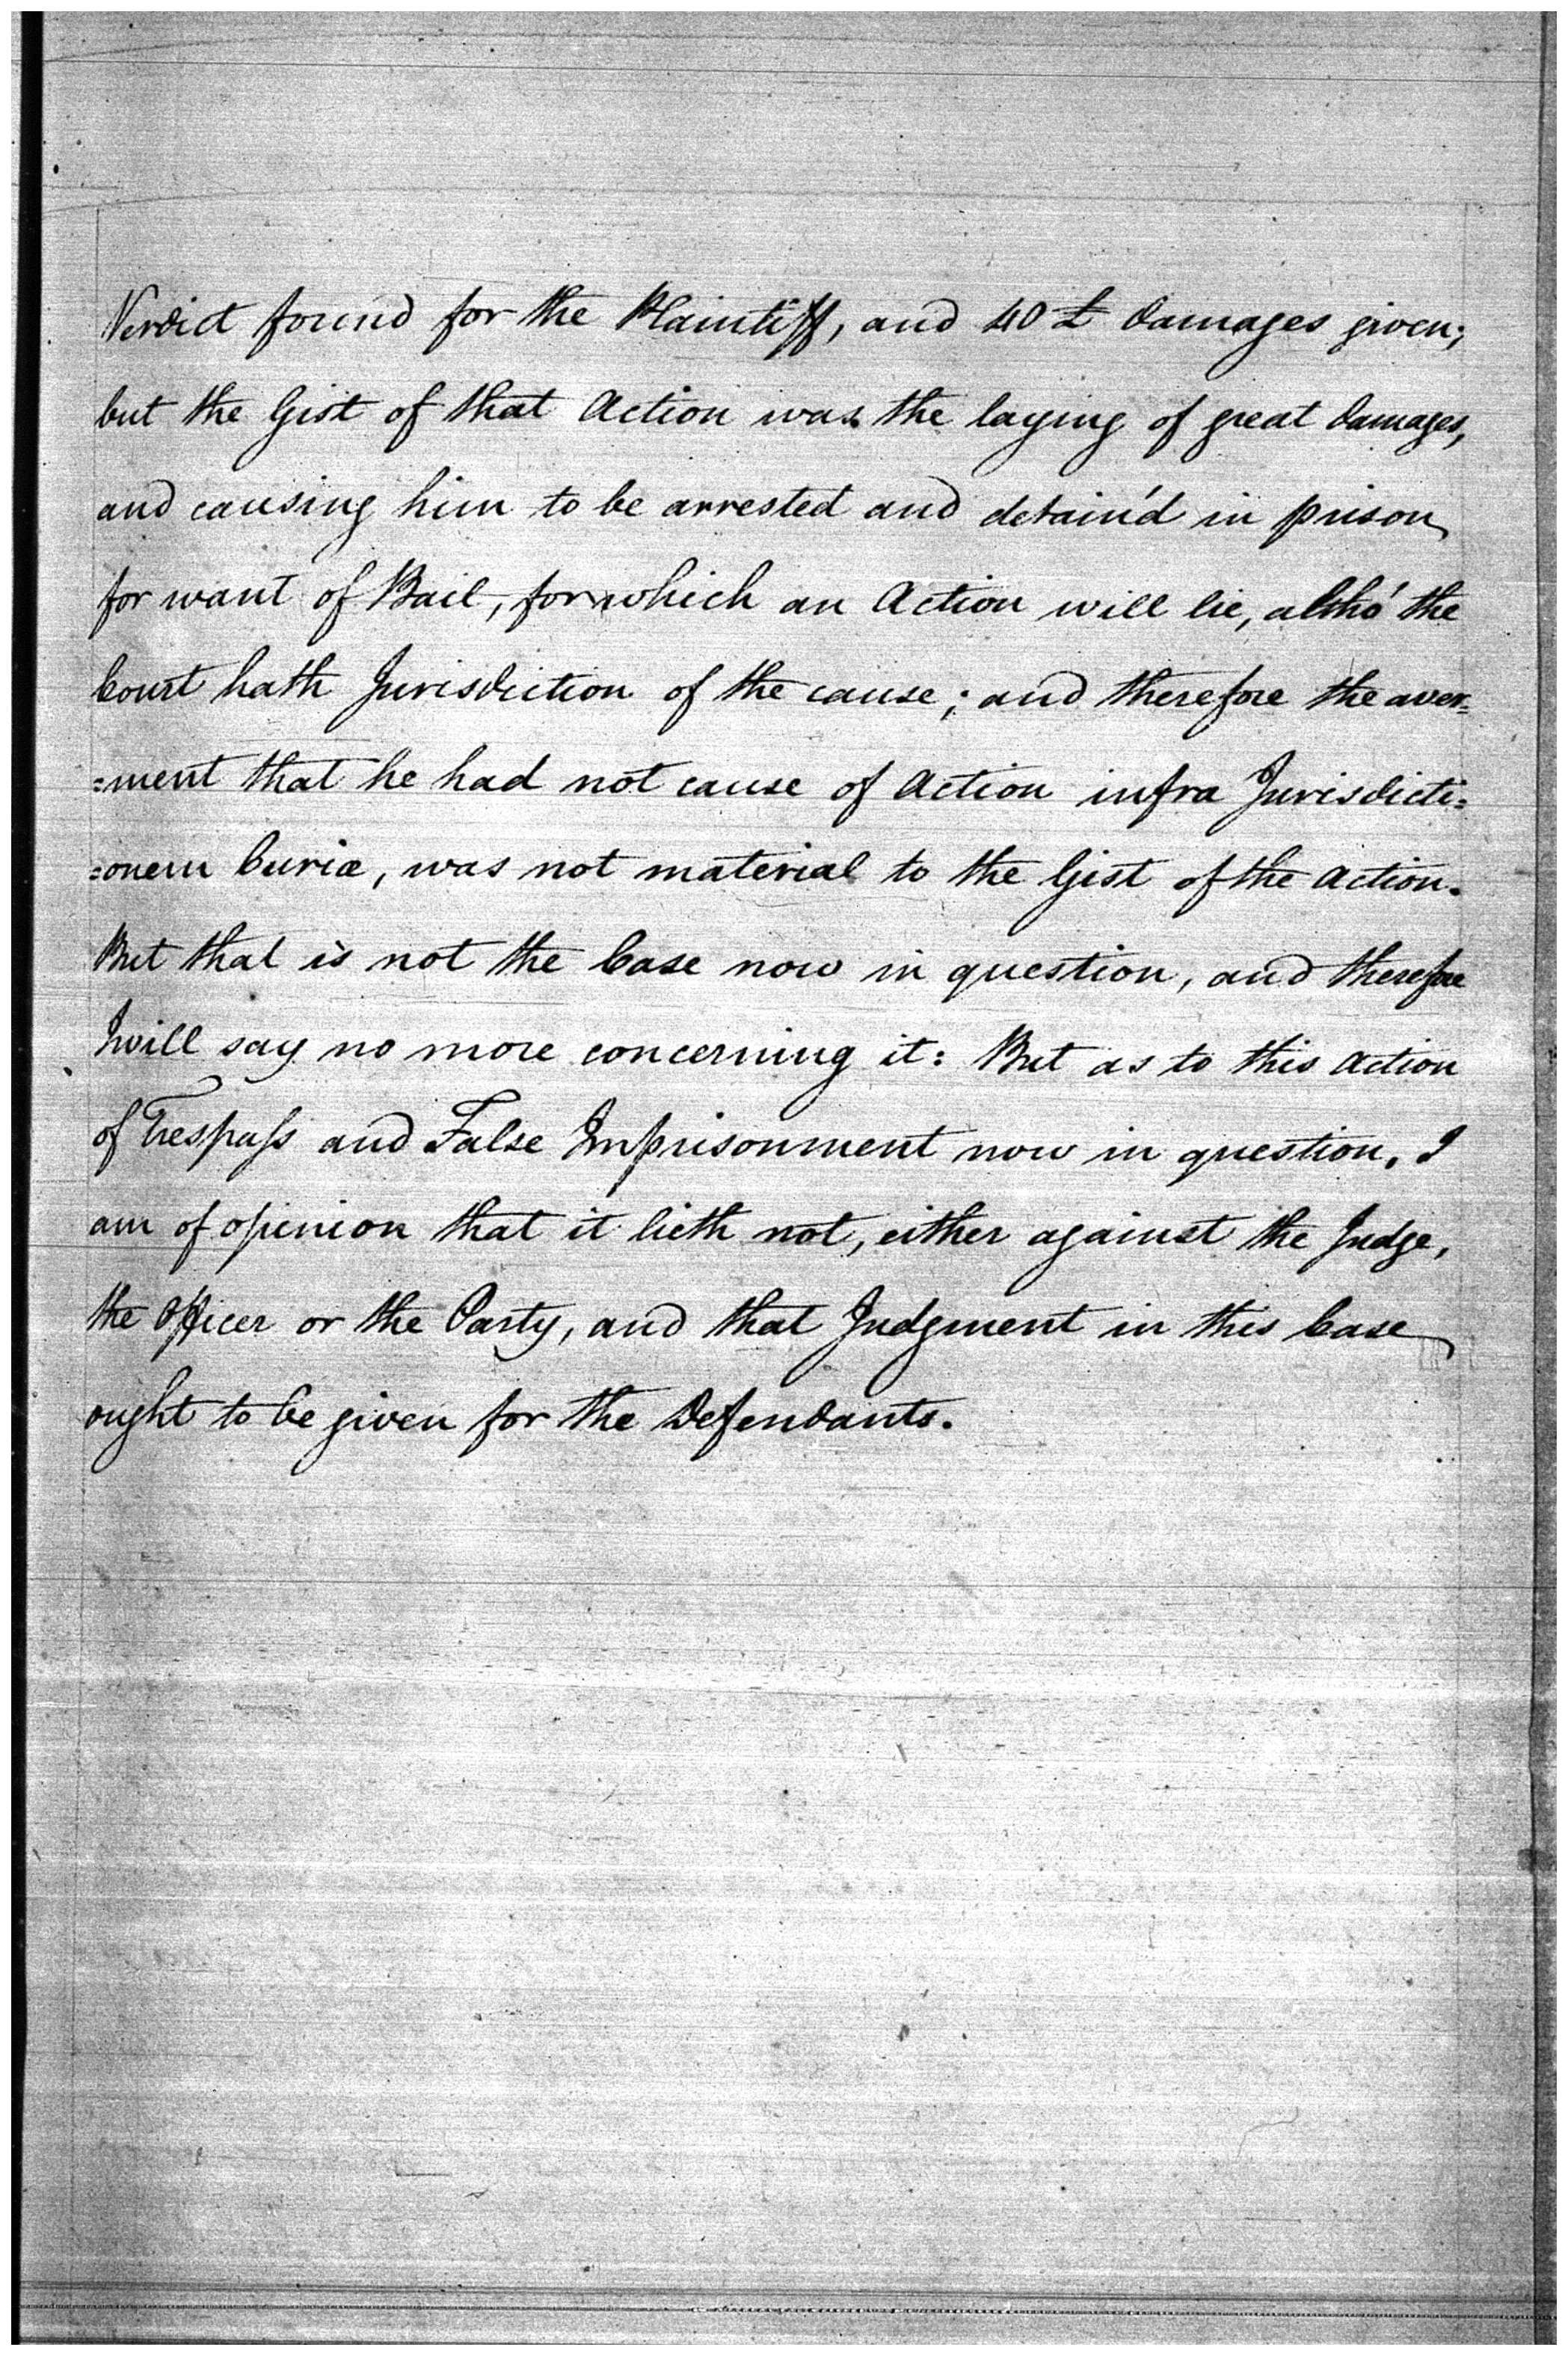 Verdict found for the Plaintiff, and 40 £ damages given;
but the Gist of that Action was the laying of great damages,
and causing him to be arrested and detain'd in prison
for want of Bail, for which an Action will lie, altho' the
Court hath Jurisdiction of the cause; and therefore the aver=
=ment that he had not cause of Action infra Jurisdicti=
=onem Curiæ, was not material to the Gist of the Action.
But that is not the Case now in question, and therefore
I will say no more concerning it: But as to this Action
of Trespass and False Imprisonment now in question, I
am of opinion that it lieth not, either against the Judge,
the Officer or the Party, and that Judgment in this Case
ought to be given for the Defendants.